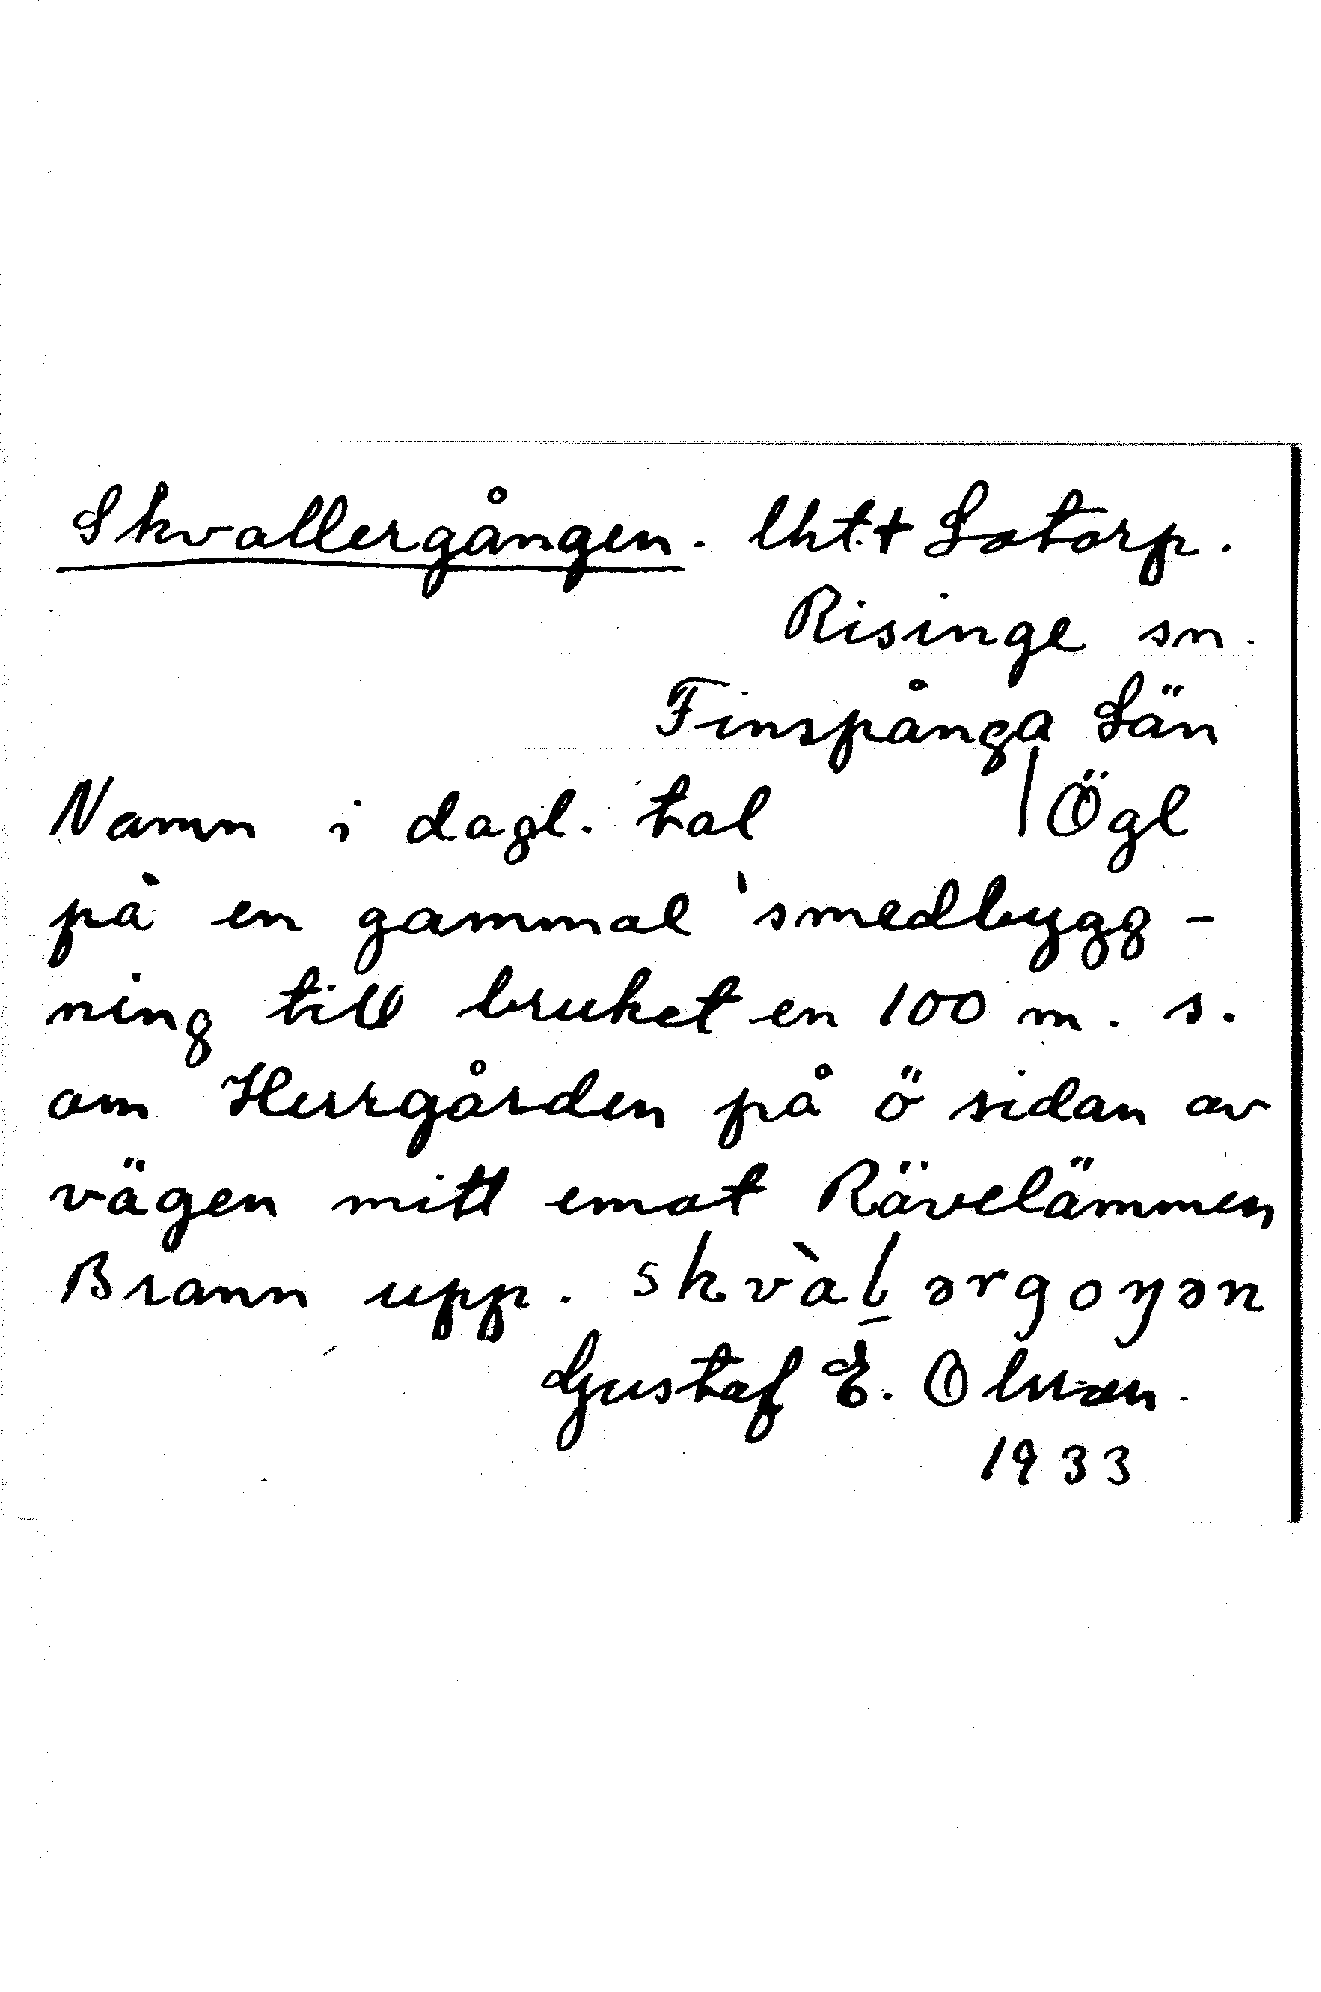 Skvallergången. lht.t Lotorp.
Risinge sn.
Finspånga Län
Namn i dagl. tal | Ögl
på en gammal smedbygg-
ning till bruket en 100 m. s.
om Herrgården på ö sidan av
vägen mitt emot Rävelämmen
Brann upp. skvàlərgoŋən
Gustaf E. Olsson.
1933